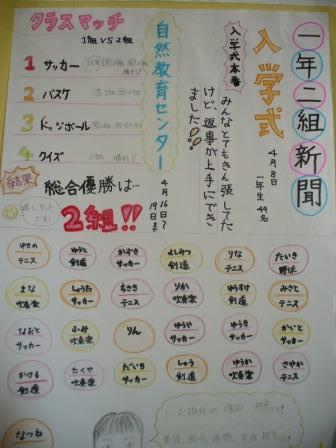 一年二組新聞
入学式
4月8日
一年生 49名
入学式本番
みんなとてもきん張してた
けど、返事が上手にでき
ました!!
自然教育センター
4月16日〜
19日まで
クラスマッチ
1組 VS 2組
1 サッカー
2 バスケ
3 ドッジボール
4 クイズ
結果
総合優勝は…
2組!!
ゆきの テニス
ゆうと 剣道
かずき サッカー
よしみつ 剣道
りな テニス
たいき 野球
まな 吹奏楽
しょうた サッカー
ちさき テニス
りか 吹奏楽
ゆうすけ 剣道
みさと テニス
なおと サッカー
ふみ 吹奏楽
りん
ゆうや サッカー
ゆうき サッカー
かいと サッカー
かける 剣道
たくや 吹奏楽
だいち サッカー
しゅう 剣道
ゆうか 吹奏楽
さやか テニス
なつね